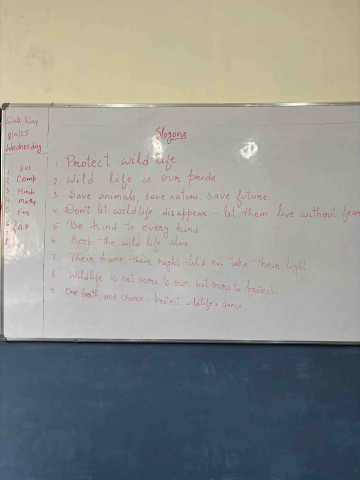 Date/Day
Slogans
Wednesday
1. EVS
2. Comp
3. Hindi
4. Maths
5. Eng
1. Protect wild life
2. Wild life is our pride
3. Save animals, save nature, save future
4. Don't let wildlife disappear - let them live without fear
5. Be kind to every kind
6. Keep the wild life alive
7. Their home, their right - let's not take their light
8. Wildlife is not ours to own, but ours to protect.
9. One Earth, one chance - protect wildlife's dance